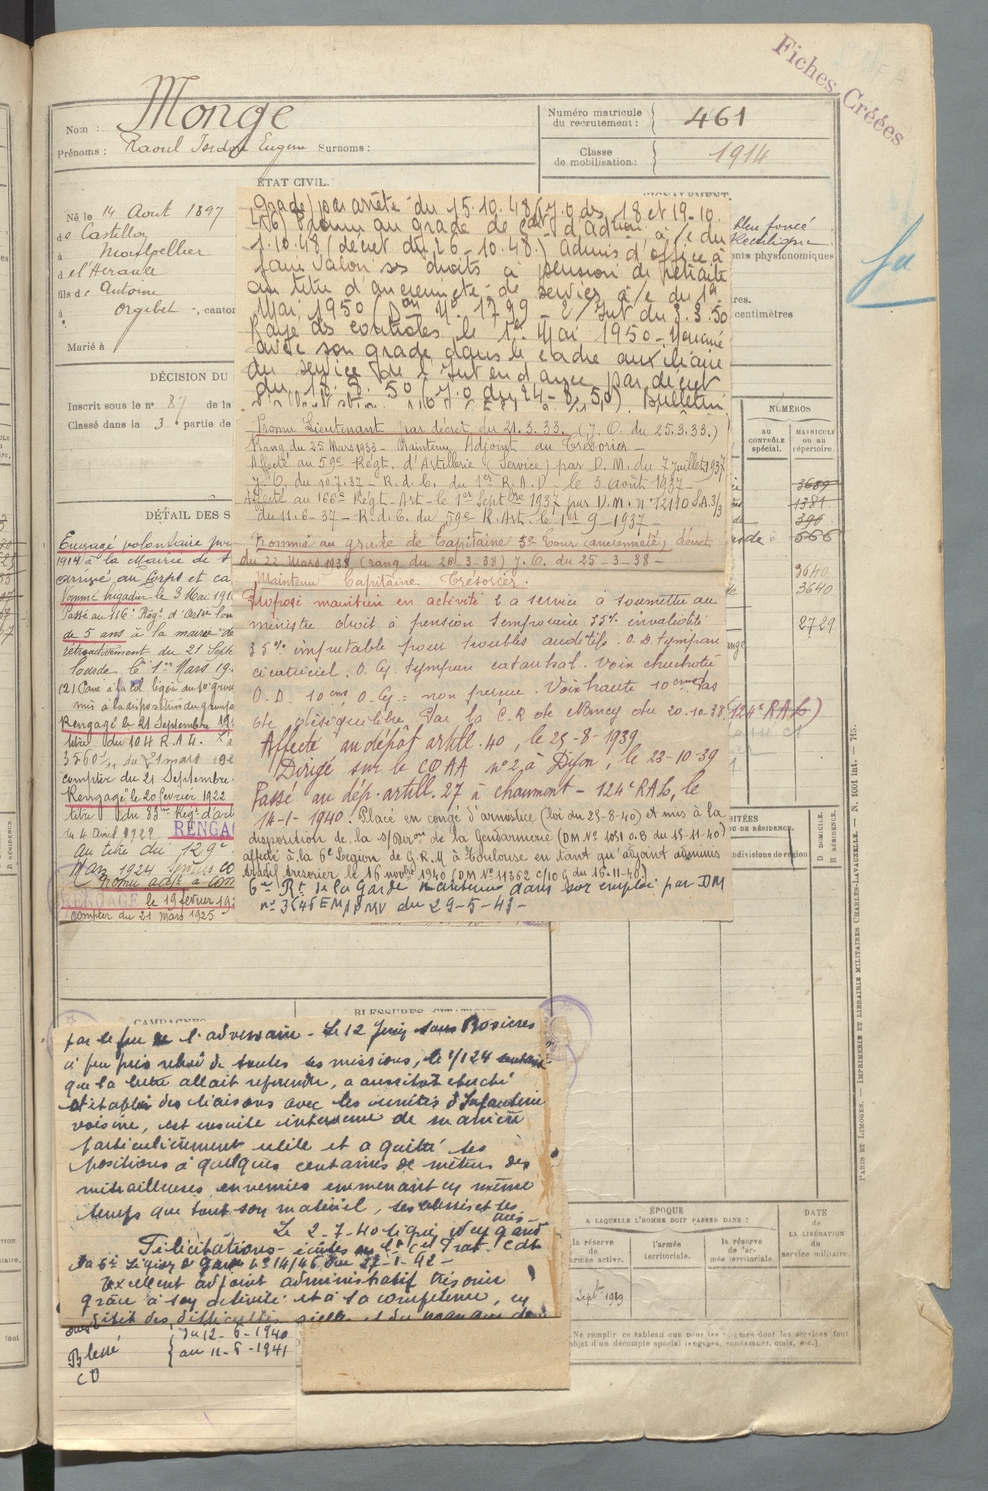 Fiches Créées
Nom : Monge
Prénoms : Raoul Eugene Surnoms :
Numéro matricule du recrutement : 461
Classe de mobilisation : 1914
ÉTAT CIVIL.
Né le 14 Aout 1897
de Castillon
à Montpellier
d e l'Herault
fils de Antoine
à Orgibet -, canton
Marié à
bleu foncé
Rectiligne
ents physionomiques
res.
centimètres
fu
DÉCISION DU
Inscrit sous le nº 87 de la
Classé dans la 3 partie de
DÉTAIL DES S
Engagé volontaire pour
1914 à la Mairie de
arrivé au Corps et ca
Nommé brigadier le 3 Mai 191
Passé au 116e Régt d'Artie
de 5 ans à la mairie de
rétroactivement du 21 Sept
lourde le 1er Mars 19
mis à la disposition du
Rengagé le 21 Septembre 19
titre du 104 R.A.L.
compter du 21 Septembre
Rengagé le 20 février 1922
titre du 83me Régt d'art
du 4 Avril 1922 RENGA
au titre du 129e
Mars 1924
Promu adjt à com
RENGAGÉ le 19 février 192
compter du 21 mars 1925
grade) par arrêté du 15.10.48 (J.O des 18 et 19-10.
48) Promu au grade de Cdt d'Adtion à /c du
1.10.48 (décret du 26-10.48) Admis d'office à
faire valoir ses droits à pension de retraite
au titre d'ancienneté de services à /c du 1er
Mai 1950 (Don Mle 1799 - 2/Int du 3.3.50
Rayé des controles le 1er Mai 1950 - Nommé
avec son grade dans le cadre auxiliaire
du service de l'Intendance par décret
du 15.5.50 (J.O du 24-5.50) Bulletin
Promu Lieutenant par décret du 21.3.33. (J.O. du 25.3.33.)
Rang du 25 Mars 1933 - Maintenu Adjoint au Trésorier -
Affecté au 59e Régt. d'Artillerie (Service) par D.M. du 7 juillet 1937
J.O. du 10.7.37 - R.d.C. du 1er R.A.D. le 3 Août 1937 -
Affecté au 166e Régt-Art- le 1er Septbre 1937 par D.M. nº 12120 S.A. 3/3
du 11.6-37 - R.d.C. du 59e R.Art. le 1er 9-1937 -
Nommé au grade de Capitaine 3e Tour (ancienneté) décret
du 22 Mars 1938 (rang du 25 3-38) J.O. du 25-3-38-
Maintenu Capitaine Trésorier.
Proposé maintien en activité 2 a service à soumettre au
ministre droit à pension temporaire 35% invalidité
35% imputable pour troubles auditifs O.D. tympan
cicatriciel. O.G tympan catarrhal. Voix chuchotée
O.D. 10 cms O.G = non perçue. Voix haute 10 cm Pas
de déséquilibre Par la C.R de Nancy du 20.10.38 (124e RAL)
Affecté au dépôt artill. 40, le 25-8-1939
Dirigé sur le COAA nº 2 à Dijon, le 23-10-39
Passé au dép. artill. 27 à Chaumont - 124e RAL, le
14-1-1940. Placé en congé d'armistice (loi du 25-8-40) et mis à la
disposition de la s/Don de la Gendarmerie (DM Nº 1051 O.G du 15-11-40)
affecté à la 6e Légion de G.R.M à Toulouse en tant qu'adjoint adminis
tratif trésorier le 16 novbre 1940 (DM Nº 11362 c/10 G du 16-11-40)
6me Rt de la Garde maintenu dans son emploi par DM
du 29-5-43-
NUMÉROS
AU CONTRÔLE spécial.
MATRICULE OU AU répertoire.
3689
1381
396
666
3640
3640
2729
ITÉES
OU DE RÉSIDENCE.
subdivisions de région
D. DOMICILE.
R. RÉSIDENCE.
CAMPAGNES
BLESSURES, CITATIONS
par le feu de l'adversaire - Le 12 Juin sous Rosières
à peu près relevé de toutes ses missions, le 1/124
que la lutte allait reprendre, a aussitot cherché
et établi des liaisons avec les unités d'Infanterie
voisine, est ensuite intervenu de manière
particulièrement utile et a quitté ses
positions à quelques centaines de mètres des
mitrailleuses ennemies emmenant en même
temps que tout son matériel, ses blessés et ses
tués -
Le 2-7-40 signé
Félicitations - écrites
la 6e Légion de Garde nº 14/46 du 27-1-42-
Excellent adjoint administratif trésorier
grâce à son activité et à sa compétence, en
dépit des difficultés
Blessé { du 12-6-1940
CD { au 11-5-1941
ÉPOQUE
A LAQUELLE L'HOMME DOIT PASSER DANS :
la réserve de l'armée active.
l'armée territoriale.
la réserve de l'armée territoriale.
DATE de LA LIBÉRATION du service militaire.
Septbre 1939
Ne remplir ce tableau que pour les hommes dont les services font
objet d'un décompte spécial (engagés, condamnés, omis, etc.)
PARIS ET LIMOGES. — IMPRIMERIE ET LIBRAIRIE MILITAIRES CHARLES-LAVAUZELLE. — N. 1001 int. — 715.